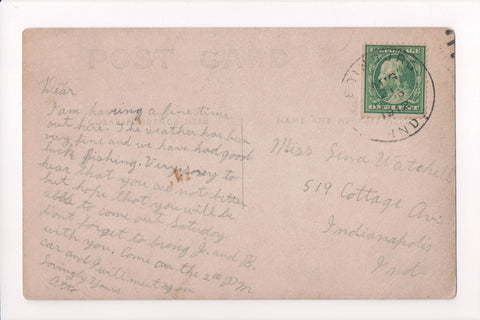 POST CARD
Dear
I am having a fine time
out here. The weather has been
CORRESPONDENCE HERE
NAME AND ADDRESS
very fine and we have had good
luck fishing. Very sorry to
hear that you are not better
but hope that you will be
able to come out Saturday
Don't forget to bring J. and B.
with you. Come on the 2 00 P.M.
car and I will meet you
Lovingly Yours
Otto
Miss Gena
519 Cottage Av.
Indianapolis
Ind.
IND.